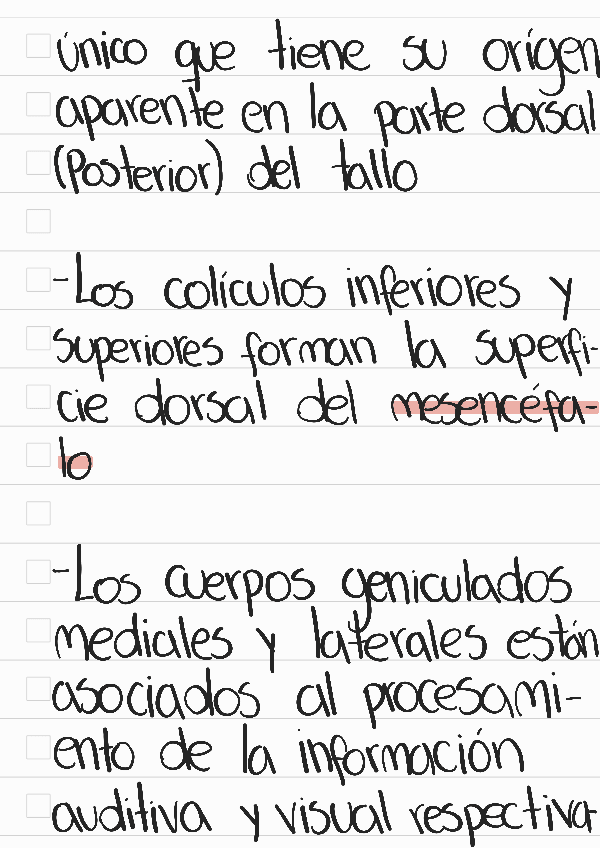 único que tiene su orígen
aparente en la parte dorsal
(Posterior) del tallo
-Los colículos inferiores y
superiores forman la superfi-
cie dorsal del mesencéfa-
lo
-Los cuerpos geniculados
mediales y laterales están
asociados al procesami-
ento de la información
auditiva y visual respectiva-